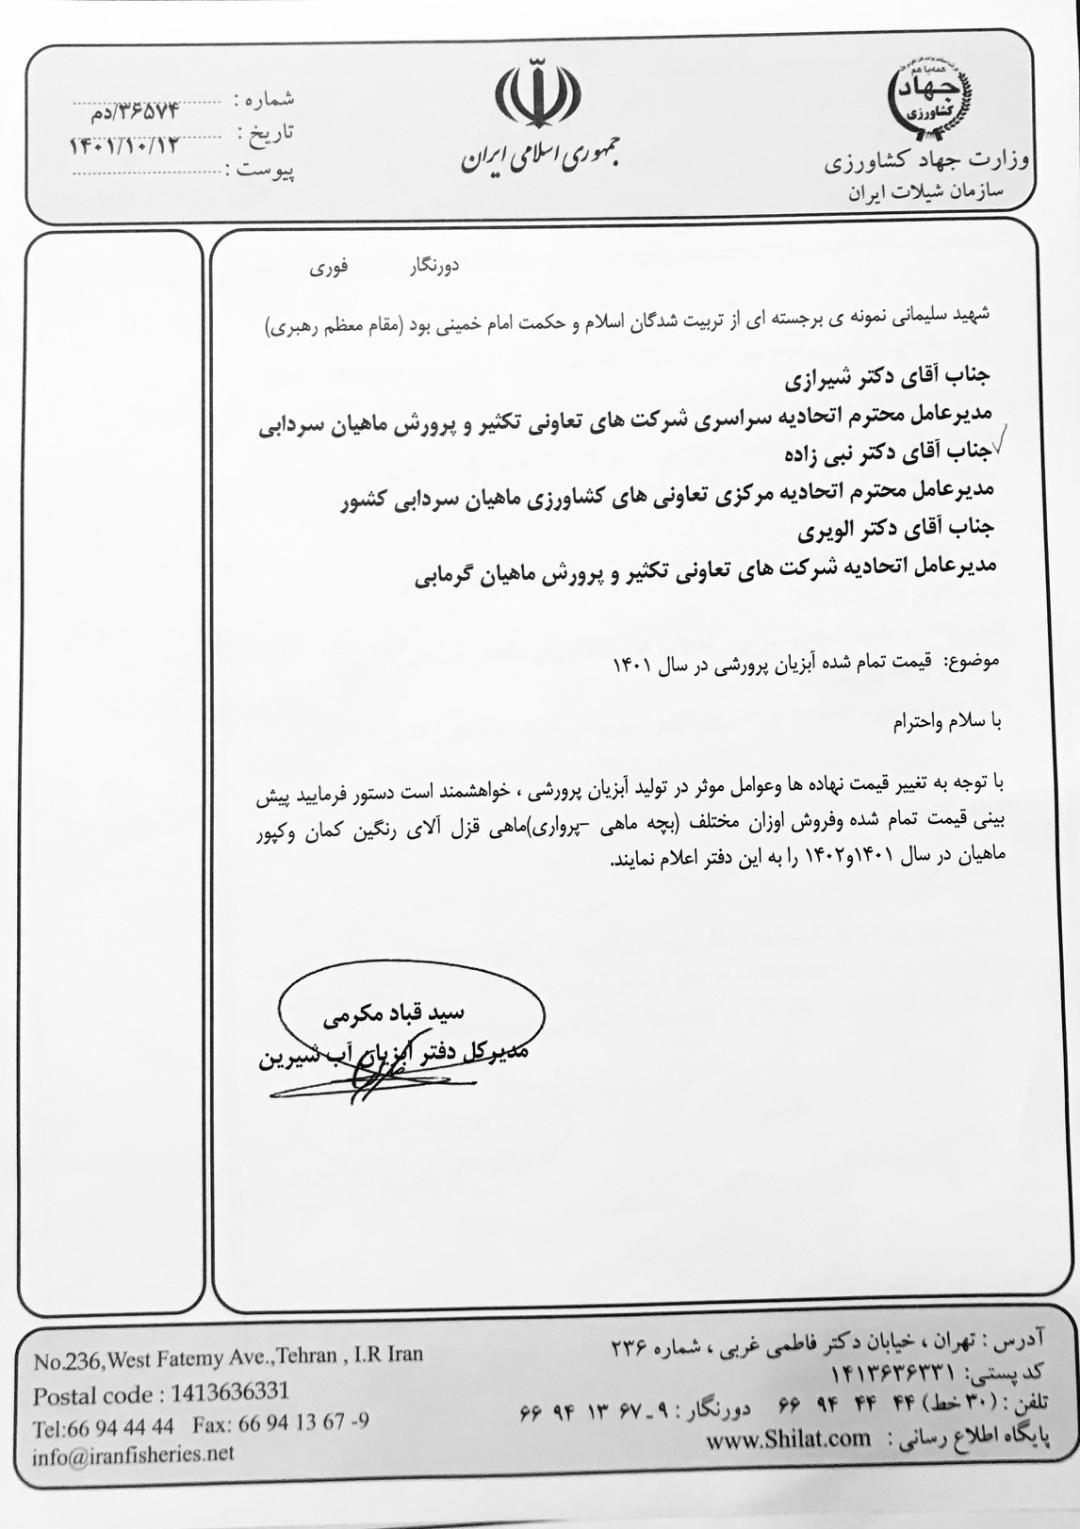 همه با هم
جهاد
کشاورزی
وزارت جهاد کشاورزی
سازمان شیلات ایران
جمهوری اسلامی ایران
شماره : ۳۶۵۷۴/دم
تاریخ : ۱۴۰۱/۱۰/۱۲
پیوست :
دورنگار فوری
شهید سلیمانی نمونه ی برجسته ای از تربیت شدگان اسلام و حکمت امام خمینی بود (مقام معظم رهبری)
جناب آقای دکتر شیرازی
مدیرعامل محترم اتحادیه سراسری شرکت های تعاونی تکثیر و پرورش ماهیان سردابی
جناب آقای دکتر نبی زاده
مدیرعامل محترم اتحادیه مرکزی تعاونی های کشاورزی ماهیان سردابی کشور
جناب آقای دکتر الویری
مدیرعامل اتحادیه شرکت های تعاونی تکثیر و پرورش ماهیان گرمابی
موضوع: قیمت تمام شده آبزیان پرورشی در سال ۱۴۰۱
با سلام واحترام
با توجه به تغییر قیمت نهاده ها وعوامل موثر در تولید آبزیان پرورشی ، خواهشمند است دستور فرمایید پیش
بینی قیمت تمام شده وفروش اوزان مختلف (بچه ماهی -پرواری)ماهی قزل آلای رنگین کمان وکپور
ماهیان در سال ۱۴۰۱و۱۴۰۲ را به این دفتر اعلام نمایند.
سید قباد مکرمی
مدیرکل دفتر آبزیان آب شیرین
آدرس : تهران ، خیابان دکتر فاطمی غربی ، شماره ۲۳۶
کد پستی: ۱۴۱۳۶۳۶۳۳۱
تلفن : (۳۰ خط) ۴۴ ۴۴ ۹۴ ۶۶ دورنگار : ۹ـ ۶۷ ۱۳ ۹۴ ۶۶
پایگاه اطلاع رسانی : www.Shilat.com
No.236,West Fatemy Ave.,Tehran , I.R Iran
Postal code : 1413636331
Tel:66 94 44 44 Fax: 66 94 13 67 -9
info@iranfisheries.net